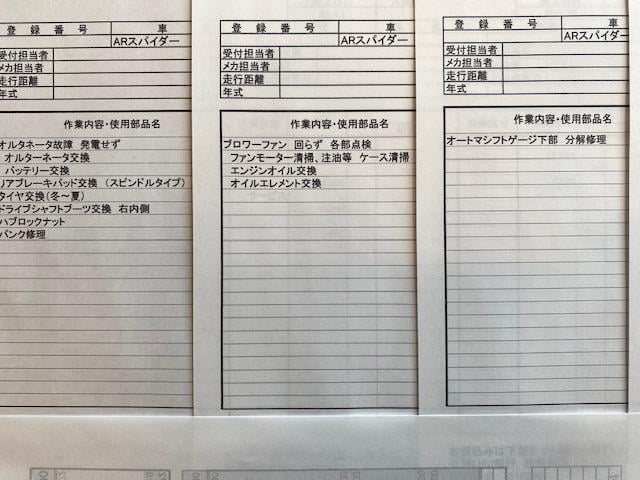 登 録 番 号 車
ARスパイダー
受付担当者
メカ担当者
走行距離
年式
作業内容・使用部品名
オルタネータ故障 発電せず
オルターネータ交換
バッテリー交換
リアブレーキパッド交換 (スピンドルタイプ)
タイヤ交換(冬～夏)
ドライブシャフトブーツ交換 右内側
ハブロックナット
パンク修理
登 録 番 号 車
ARスパイダー
受付担当者
メカ担当者
走行距離
年式
作業内容・使用部品名
ブロワーファン 回らず 各部点検
ファンモーター清掃、注油等 ケース清掃
エンジンオイル交換
オイルエレメント交換
登 録 番 号 車
ARスパイダー
受付担当者
メカ担当者
走行距離
年式
作業内容・使用部品名
オートマシフトゲージ下部 分解修理